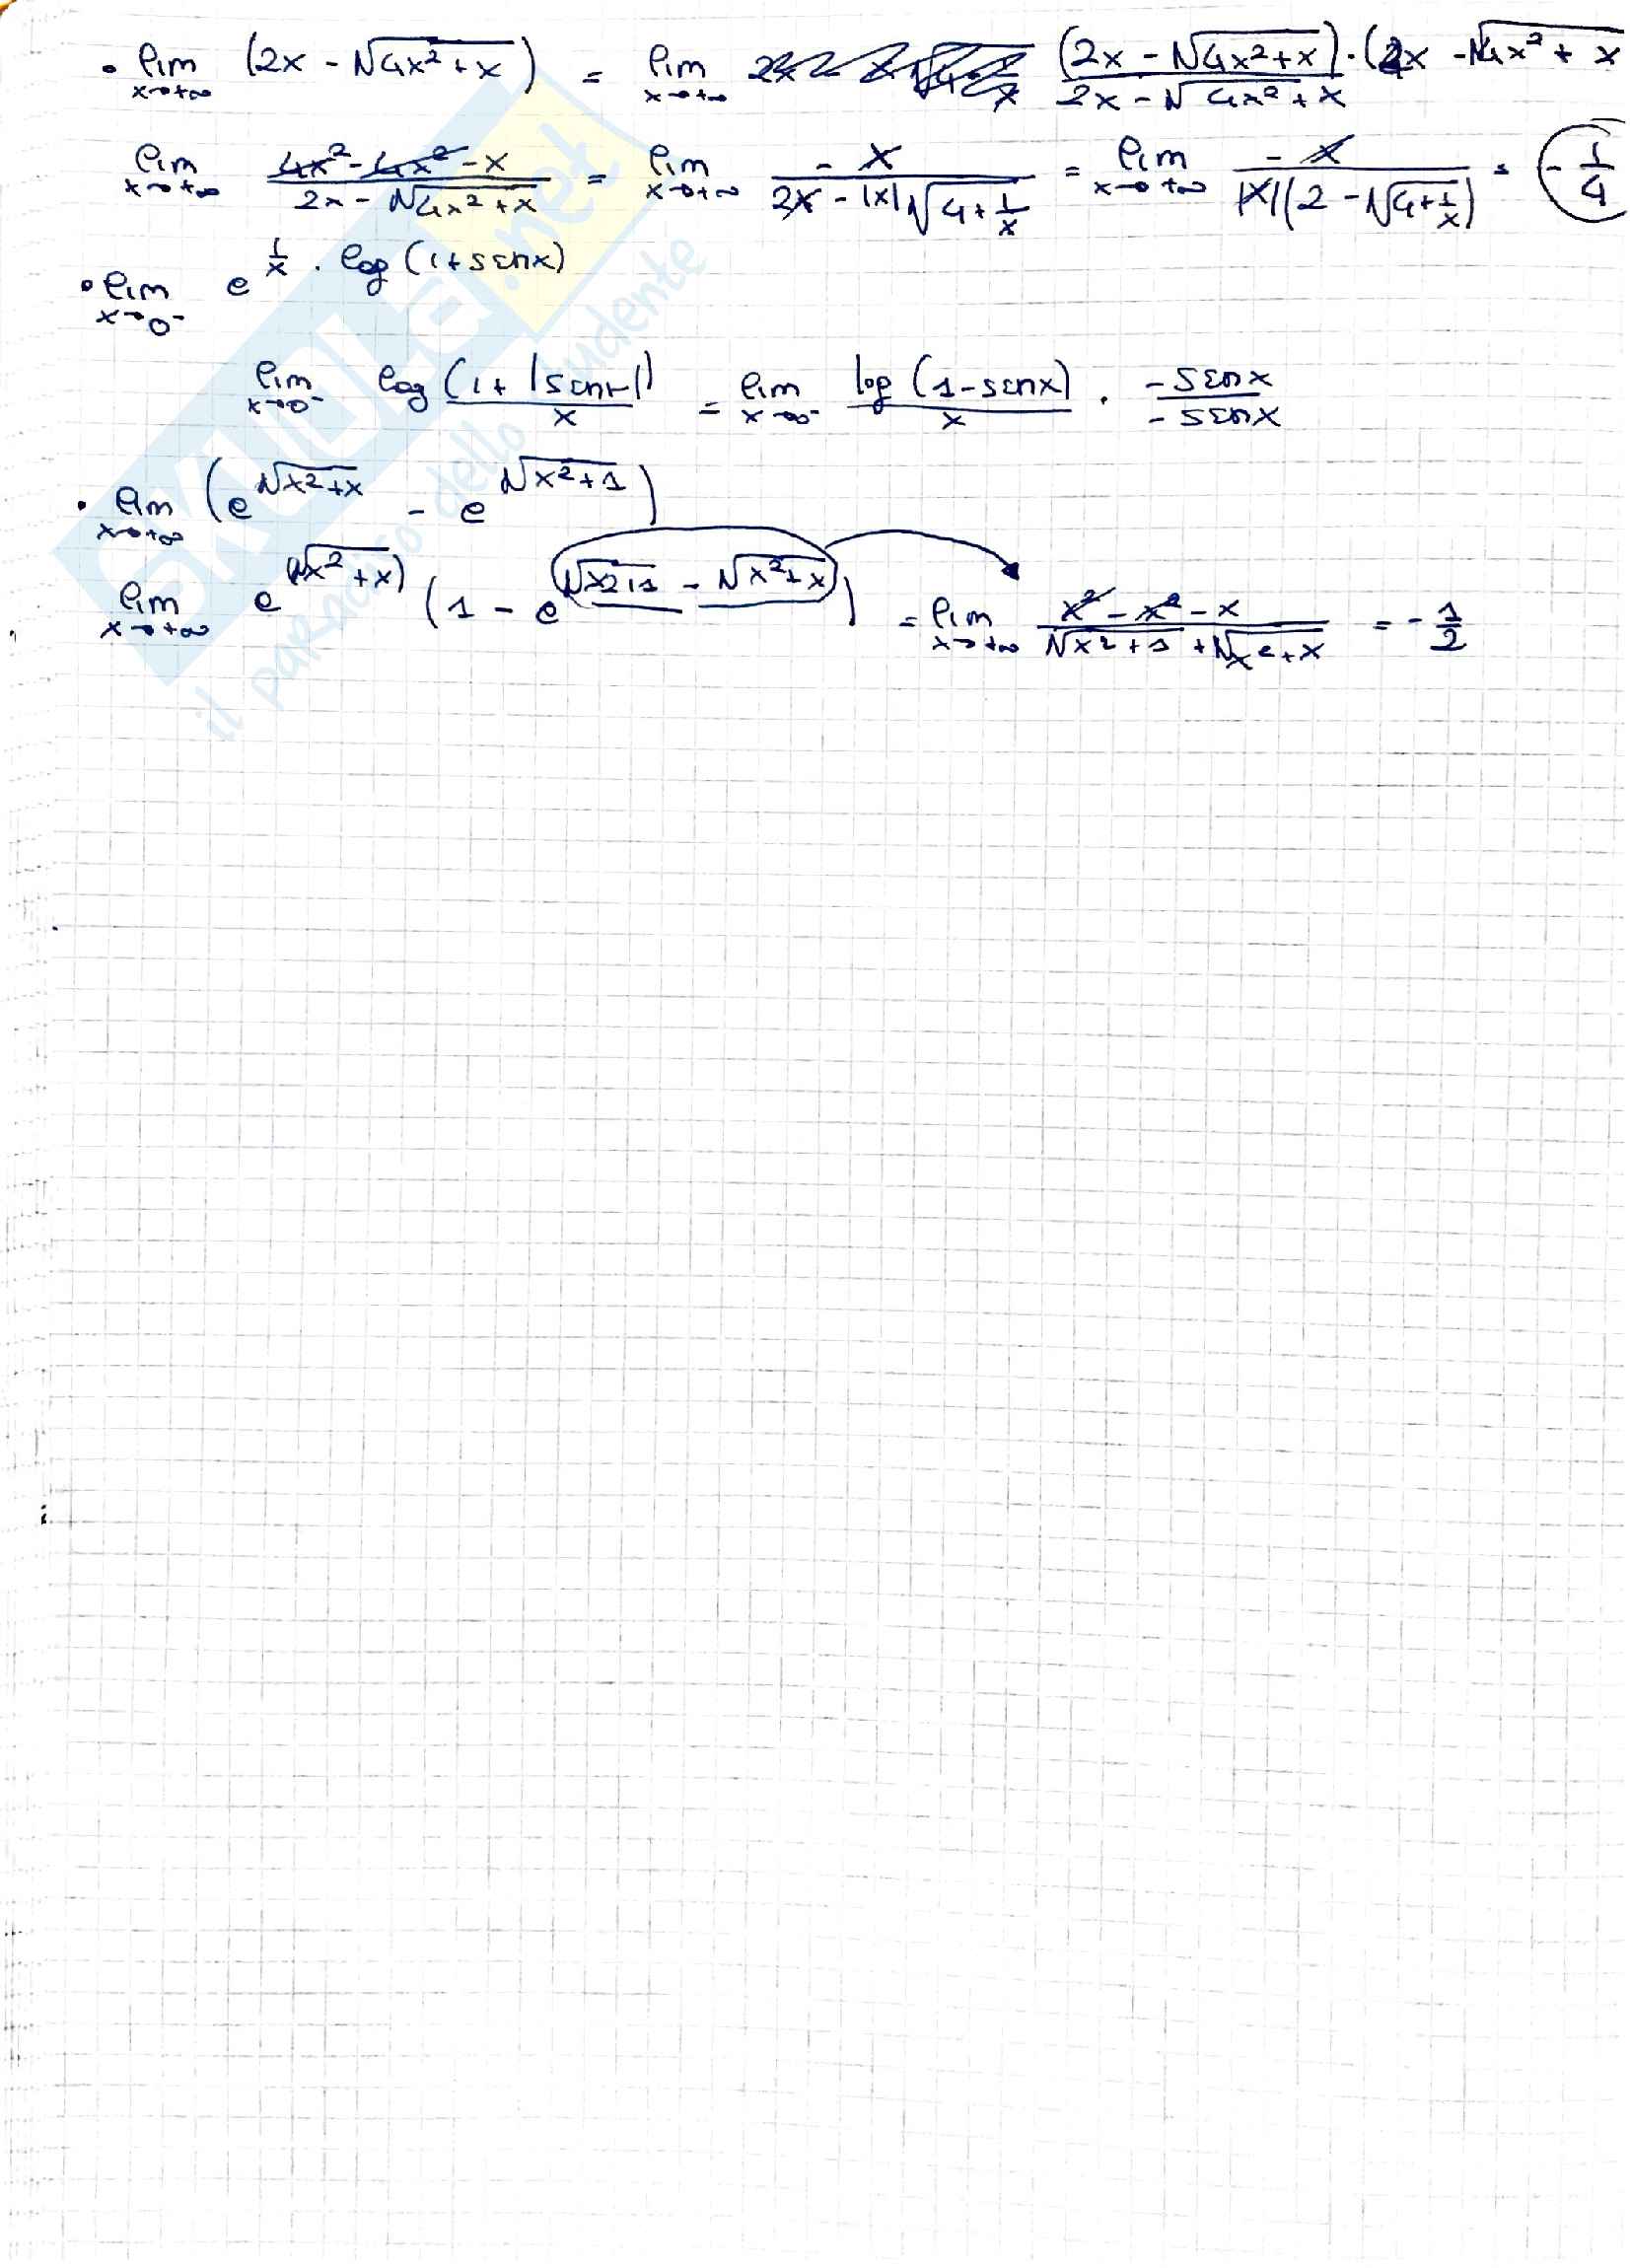 • lim x→+∞ (2x - √4x²+x) = lim x→+∞ (2x - √4x²+x)·(2x - √4x²+x / 2x - √4x²+x
lim x→+∞ 4x²-4x²-x / 2x - √4x²+x = lim x→+∞ -x / 2x - |x|√4+1/x = lim x→+∞ -x / |x|(2 - √4+1/x) = -1/4
• lim x→0⁻ e^1/x · log (1+senx)
lim x→0⁻ log (1+|senx|) / x = lim x→0⁻ log (1-senx) / x · -senx / -senx
• lim x→+∞ (e^√x²+x - e^√x²+1)
lim x→+∞ e^(√x²+x) (1 - e^√x²+1 - √x²+x) = lim x→+∞ x²-x²-x / √x²+1 + √x²+x = -1/2
SKUOLA.net
il paradiso dello studente